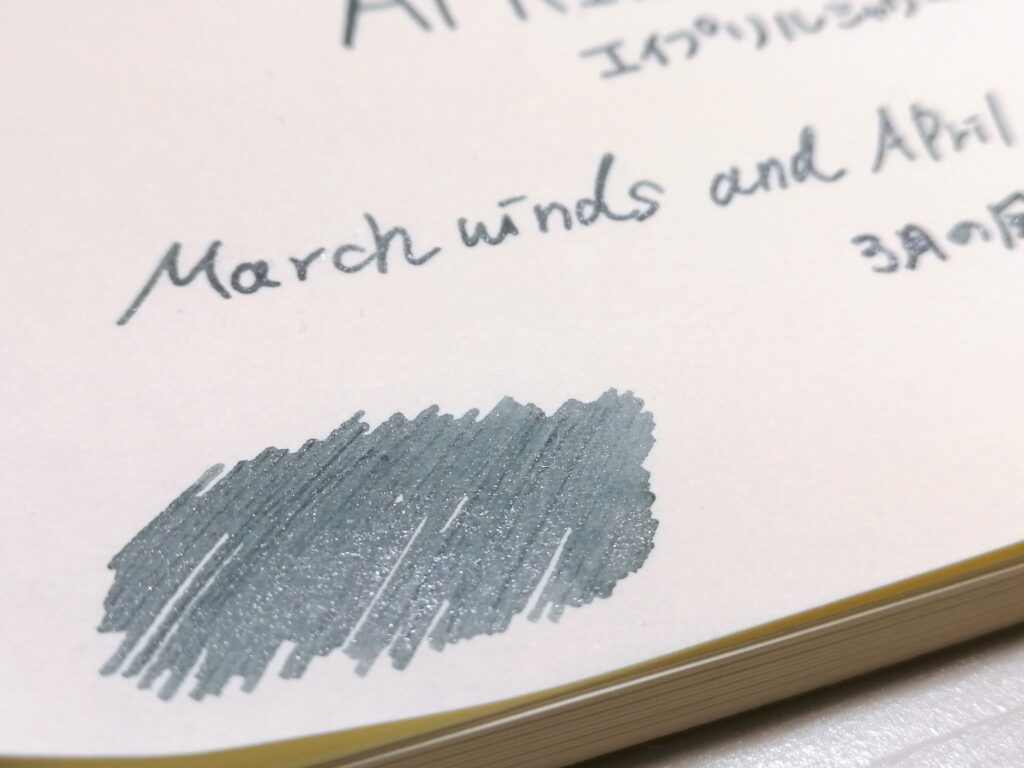 エイプリルシャワー
March winds and April
3月の風